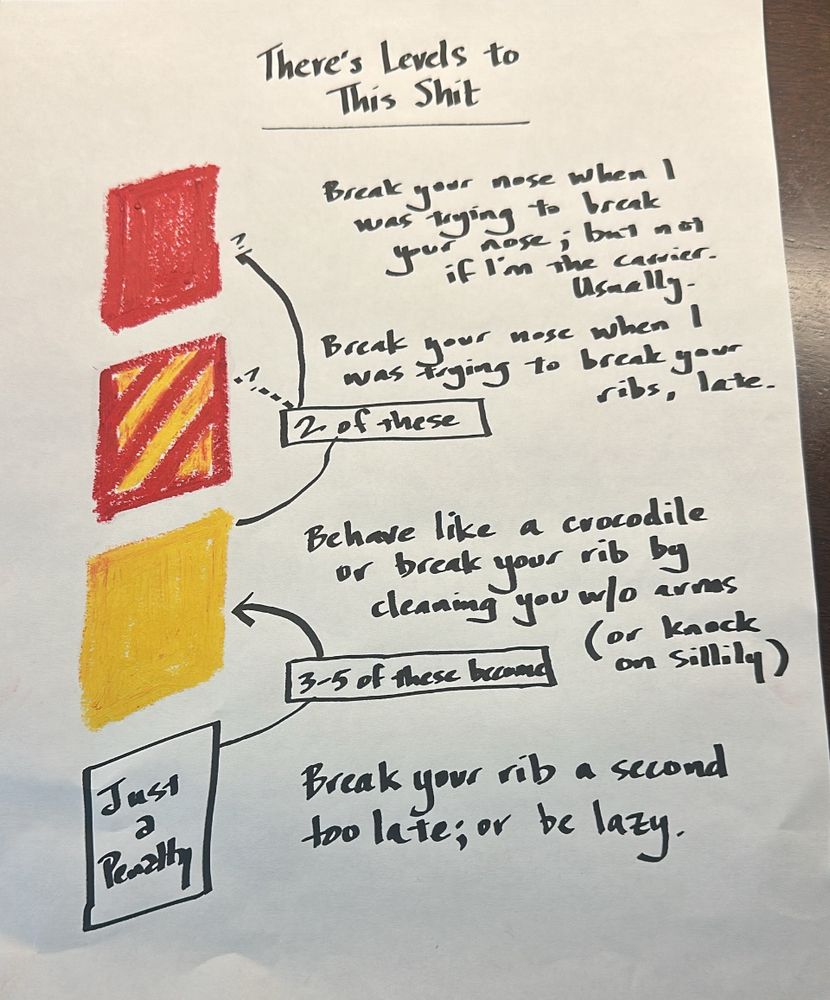 There's Levels to
This Shit
Break your nose when I
was trying to break
your nose; but not
if I'm the carrier.
Usually.
?
Break your nose when I
was trying to break your
ribs, late.
?
2 of these
Behave like a crocodile
or break your rib by
cleaning you w/o arms
(or knock
on sillily)
3-5 of these become
Just
a
Penalty
Break your rib a second
too late; or be lazy.